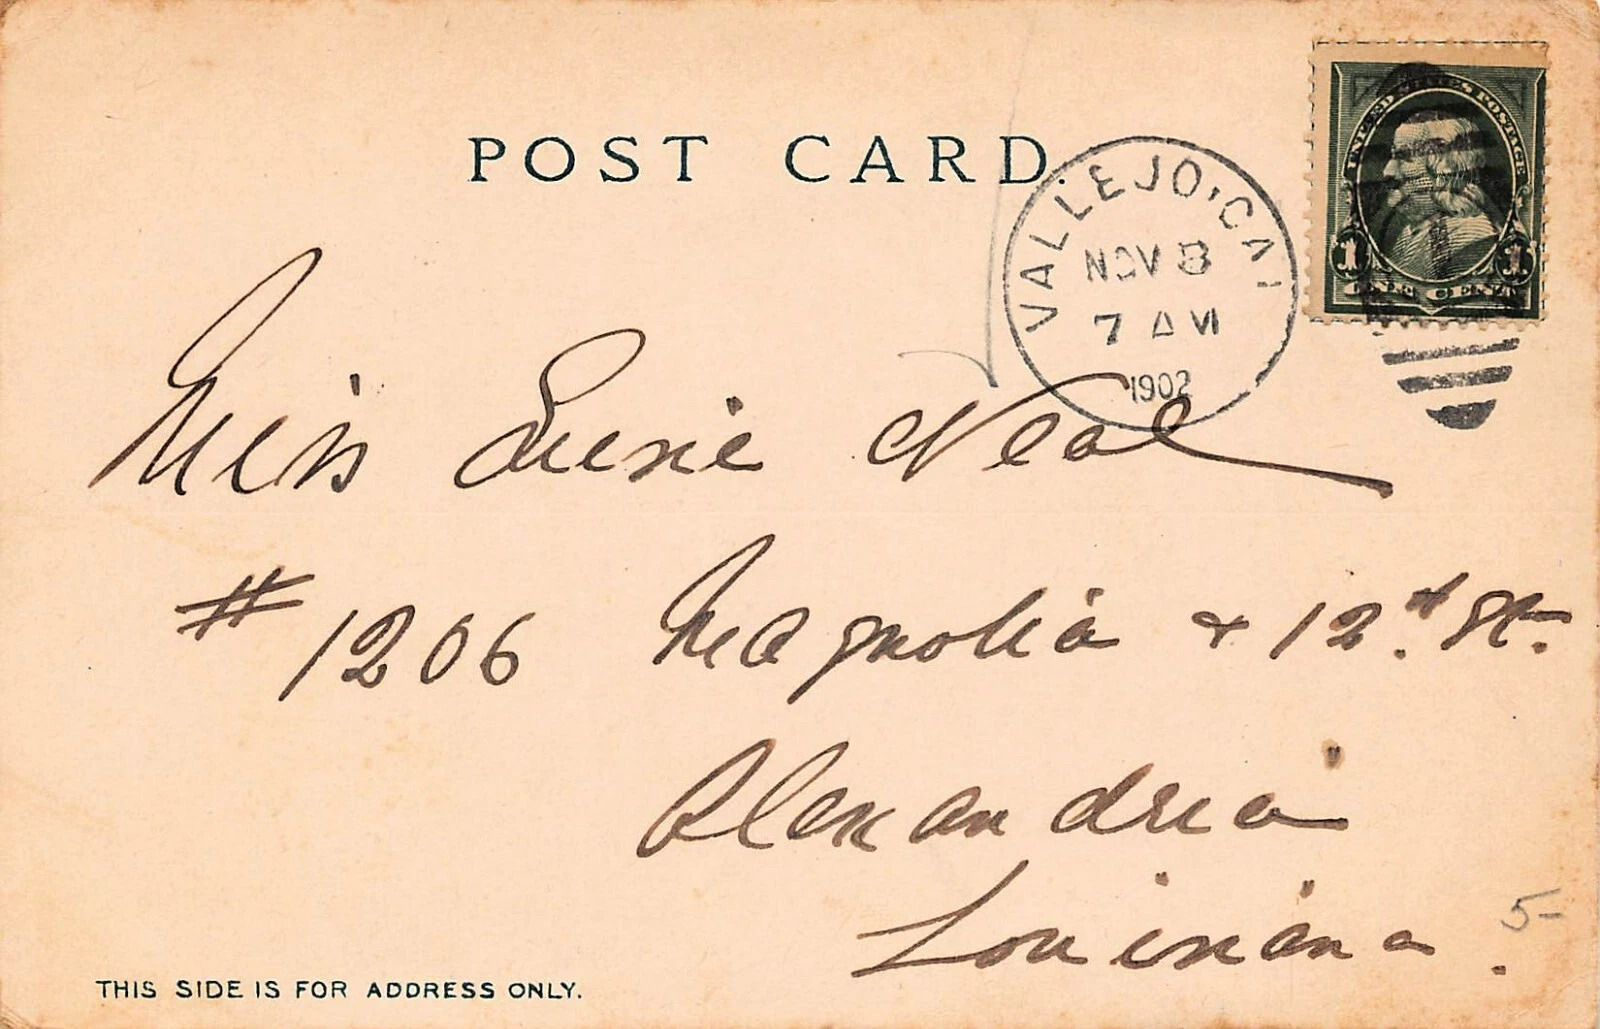 POST CARD.
VALLEJO, CAL
NOV 8
7 AM
1902
UNITED STATES POSTAGE
1 1
ONE CENT
Miss Susie Neal
# 1206 Magnolia & 12.th St.
Alexandria
Louisiana.
5-
THIS SIDE IS FOR ADDRESS ONLY.